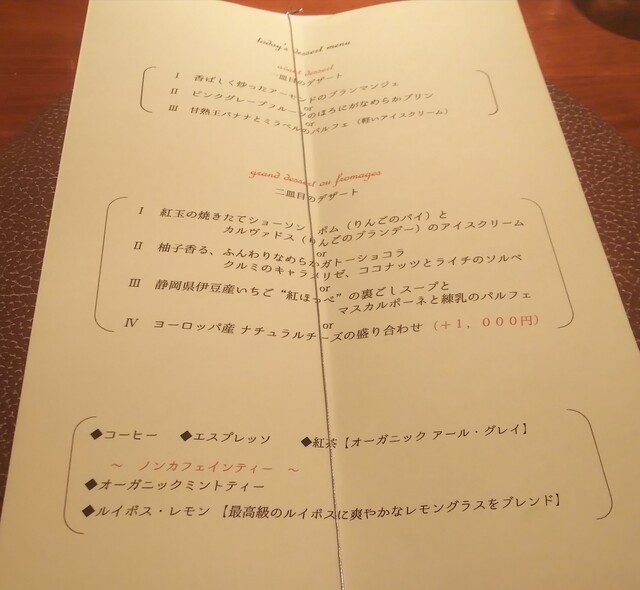 today's dessert menu
avant dessert
一皿目のデザート
Ⅰ 香ばしく炒ったアーモンドのブランマンジェ
or
Ⅱ ピンクグレープフルーツのほろにがなめらかプリン
or
Ⅲ 甘熟王バナナとミラベルのパルフェ（軽いアイスクリーム）
grand dessert ou fromages
二皿目のデザート
Ⅰ 紅玉の焼きたてショーソン ポム（りんごのパイ）と
カルヴァドス（りんごのブランデー）のアイスクリーム
or
Ⅱ 柚子香る、ふんわりなめらかガトーショコラ
クルミのキャラメリゼ、ココナッツとライチのソルベ
or
Ⅲ 静岡県伊豆産いちご“紅ほっぺ”の裏ごしスープと
マスカルポーネと練乳のパルフェ
or
Ⅳ ヨーロッパ産 ナチュラルチーズの盛り合わせ（＋１，０００円）
◆コーヒー ◆エスプレッソ ◆紅茶【オーガニック アール・グレイ】
～ ノンカフェインティー ～
◆オーガニックミントティー
◆ルイボス・レモン【最高級のルイボスに爽やかなレモングラスをブレンド】